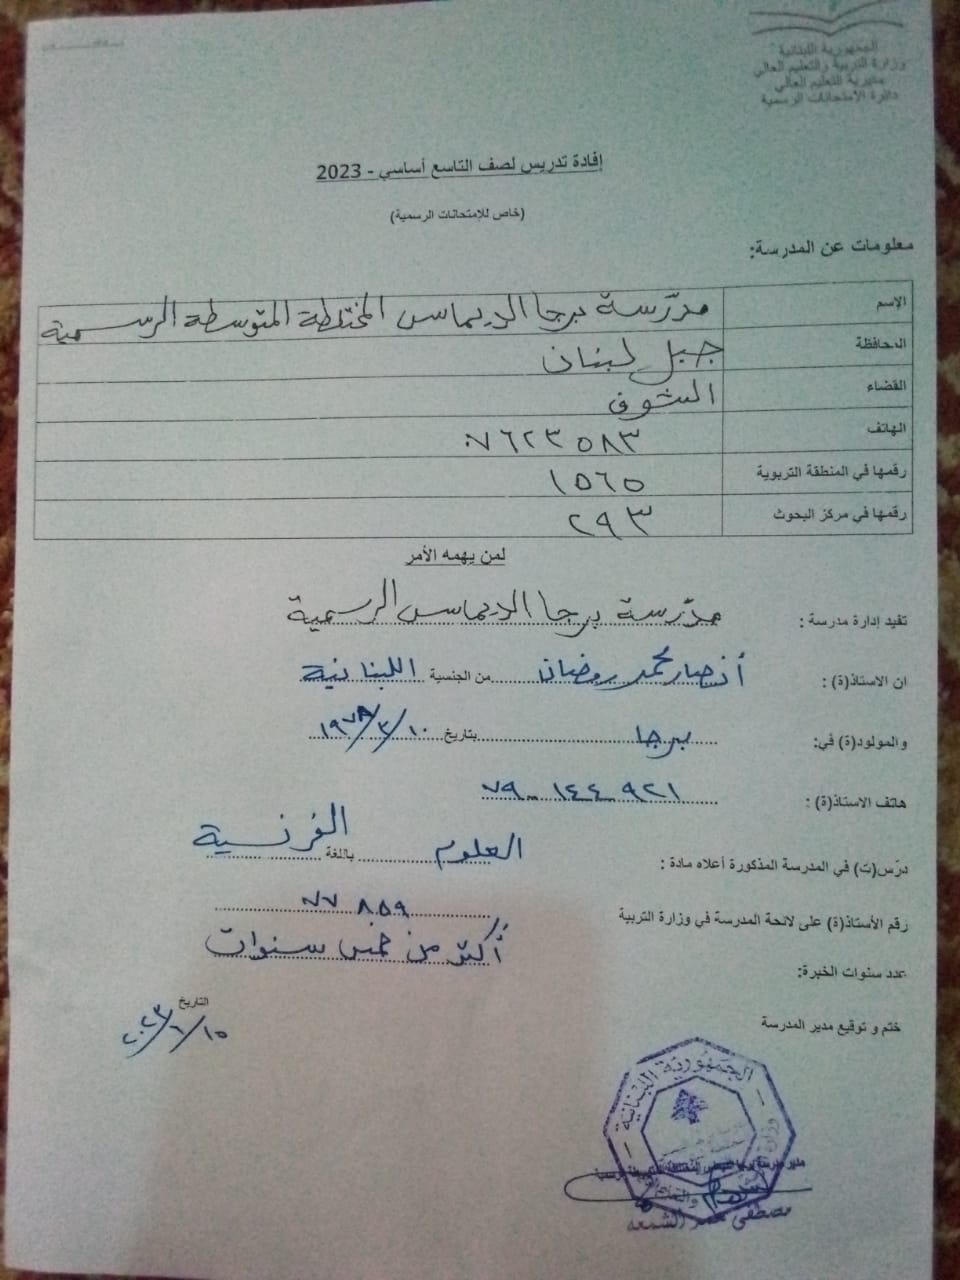 الجمهورية اللبنانية
وزارة التربية والتعليم العالي
مديرية التعليم العالي
دائرة الامتحانات الرسمية
إفادة تدريس لصف التاسع أساسي - 2023
(خاص للإمتحانات الرسمية)
معلومات عن المدرسة:
الإسم مدرّسة برجا الديماس المختلطة المتوسطة الرسمية
المحافظة جبل لبنان
القضاء الشوف
الهاتف ٠٧٦٢٣٥٨٣
رقمها في المنطقة التربوية ١٥٦٥
رقمها في مركز البحوث ٢٩٣
لمن يهمه الأمر
تفيد إدارة مدرسة : مدرّسة برجا الديماس الرسمية
ان الاستاذ(ة) : أنصار محمد رمضان من الجنسية اللبنانية
والمولود(ة) في: برجا بتاريخ ١٠/٣/١٩٧٨
هاتف الاستاذ(ة) : ٧٩_١٤٤_٩٢١
درّس(ت) في المدرسة المذكورة أعلاه مادة : العلوم باللغة الفرنسية
رقم الأستاذ(ة) على لائحة المدرسة في وزارة التربية ٧٧٨٥٩
عدد سنوات الخبرة: أكثر من خمس سنوات
التاريخ
١٥/٦/٢٠٢٣
ختم و توقيع مدير المدرسة
الجمهورية اللبنانية
مصطفى الشمعة